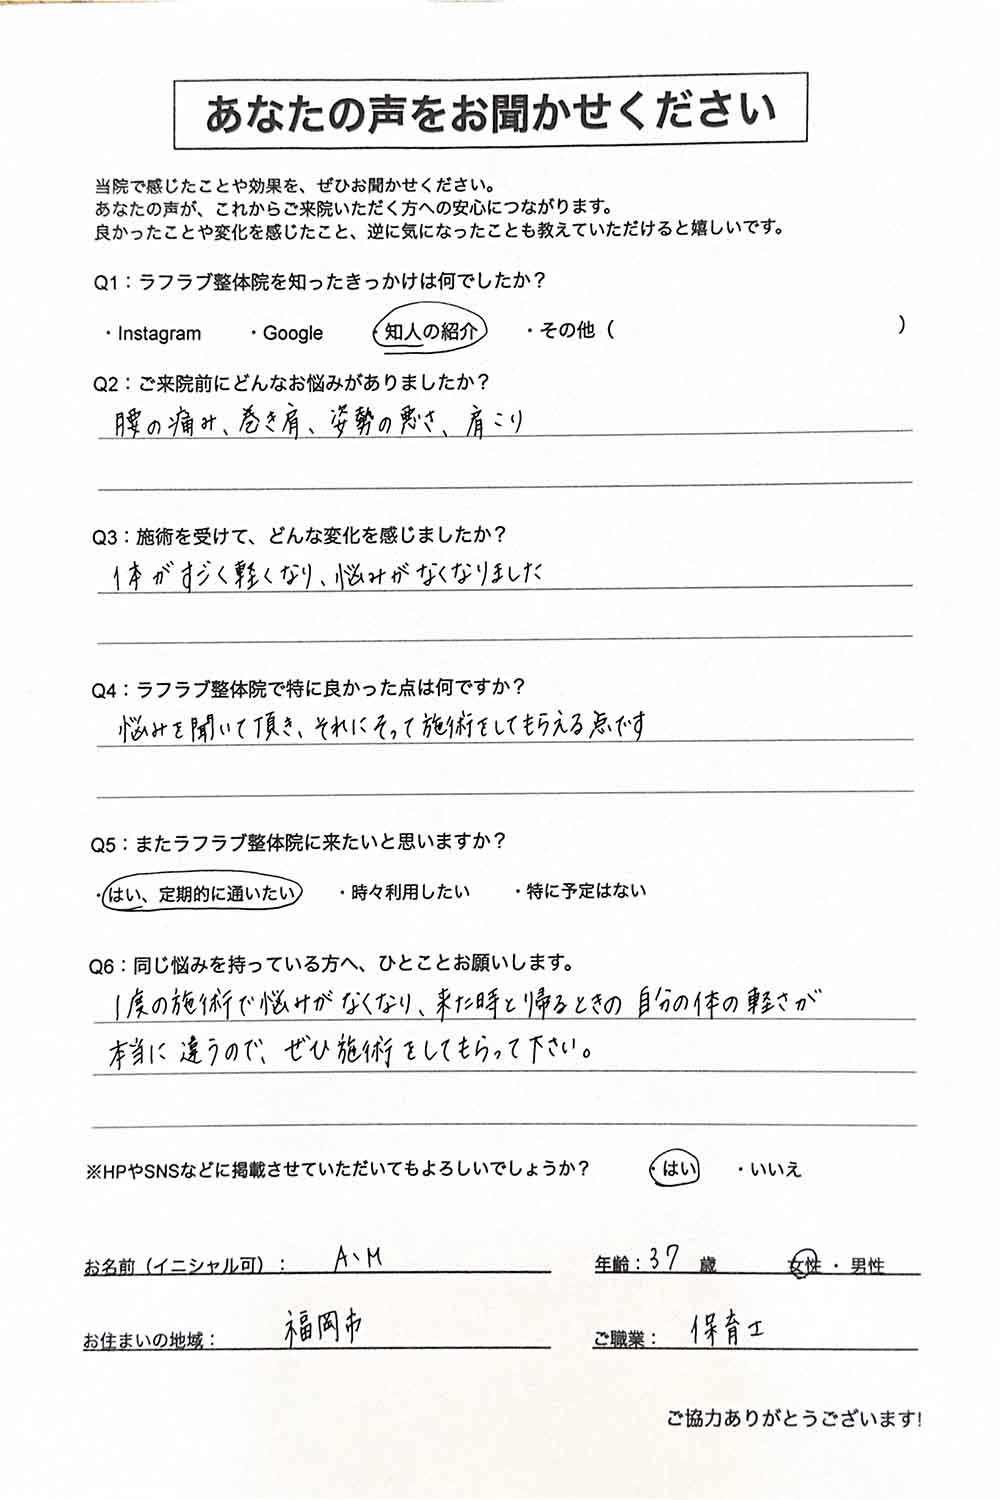 あなたの声をお聞かせください
当院で感じたことや効果を、ぜひお聞かせください。
あなたの声が、これからご来院いただく方への安心につながります。
良かったことや変化を感じたこと、逆に気になったことも教えていただけると嬉しいです。
Q1：ラフラブ整体院を知ったきっかけは何でしたか？
・Instagram ・Google ・知人の紹介 ・その他（ ）
Q2：ご来院前にどんなお悩みがありましたか？
腰の痛み、巻き肩、姿勢の悪さ、肩こり
Q3：施術を受けて、どんな変化を感じましたか？
体がすごく軽くなり、悩みがなくなりました
Q4：ラフラブ整体院で特に良かった点は何ですか？
悩みを聞いて頂き、それにそって施術をしてもらえる点です
Q5：またラフラブ整体院に来たいと思いますか？
・はい、定期的に通いたい ・時々利用したい ・特に予定はない
Q6：同じ悩みを持っている方へ、ひとことお願いします。
1度の施術で悩みがなくなり、来た時と帰るときの自分の体の軽さが
本当に違うので、ぜひ施術をしてもらって下さい。
※HPやSNSなどに掲載させていただいてもよろしいでしょうか？ ・はい ・いいえ
お名前（イニシャル可）： A、M 年齢：37 歳 女性 ・ 男性
お住まいの地域： 福岡市 ご職業： 保育士
ご協力ありがとうございます!